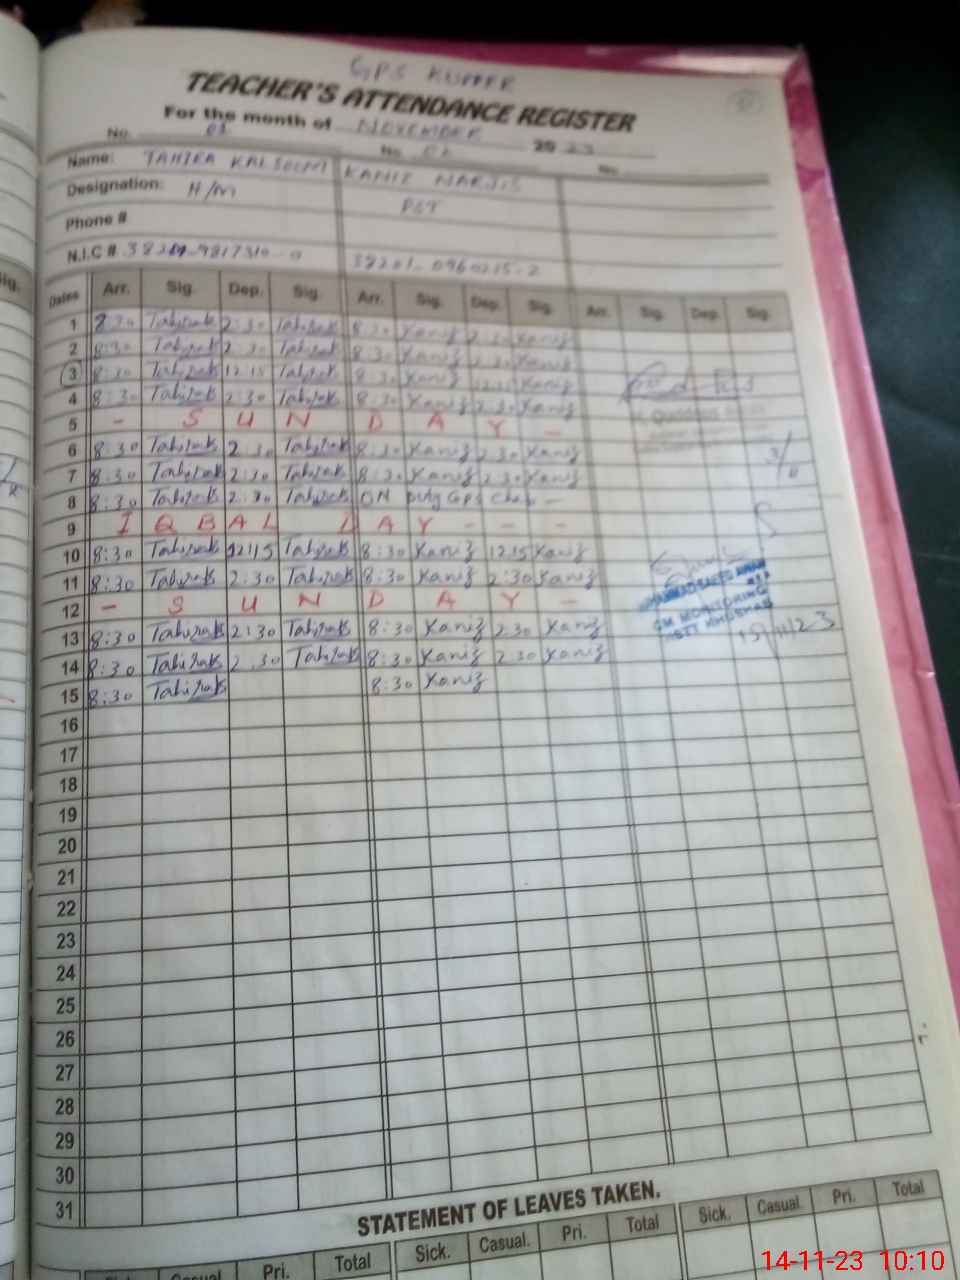 GPS KUFFR
TEACHER'S ATTENDANCE REGISTER
For the month of NOVEMBER 2023
No. 01 No. 02 No.
Name: TAHIRA KALSOOM KANIZ NARJIS
Designation: H/M PST
Phone #
N.I.C #. 38201-0960215-2
Dates Arr. Sig. Dep. Sig. Arr. Sig. Dep. Sig. Arr. Sig. Dep. Sig.
1 8:30 Tahirak 2:30 Tahirak 8:30 Kaniz 2:30 Kaniz
2 8:30 Tahirak 2:30 Tahirak 8:30 Kaniz 2:30 Kaniz
3 8:30 Tahirak 12:15 Tahirak 8:30 Kaniz 12:15 Kaniz
4 8:30 Tahirak 2:30 Tahirak 8:30 Kaniz 2:30 Kaniz
5 - S U N D A Y -
6 8:30 Tahirak 2:30 Tahirak 8:30 Kaniz 2:30 Kaniz
7 8:30 Tahirak 2:30 Tahirak 8:30 Kaniz 2:30 Kaniz
8 8:30 Tahirak 2:30 Tahirak ON Duty GPS -
9 I Q B A L D A Y - - -
10 8:30 Tahirak 12:15 Tahirak 8:30 Kaniz 12:15 Kaniz
11 8:30 Tahirak 2:30 Tahirak 8:30 Kaniz 2:30 Kaniz
12 - S U N D A Y -
MUHAMMAD SAEED AWAN
MONITORING
DISTT KHUSHAB
13 8:30 Tahirak 2:30 Tahirak 8:30 Kaniz 2:30 Kaniz 15/11/23
14 8:30 Tahirak 2:30 Tahirak 8:30 Kaniz 2:30 Kaniz
15 8:30 Tahirak 8:30 Kaniz
16
17
18
19
20
21
22
23
24
25
26
27
28
29
30
31
STATEMENT OF LEAVES TAKEN.
Sick. Casual Pri. Total Sick. Casual. Pri. Total Sick. Casual Pri. Total
14-11-23 10:10